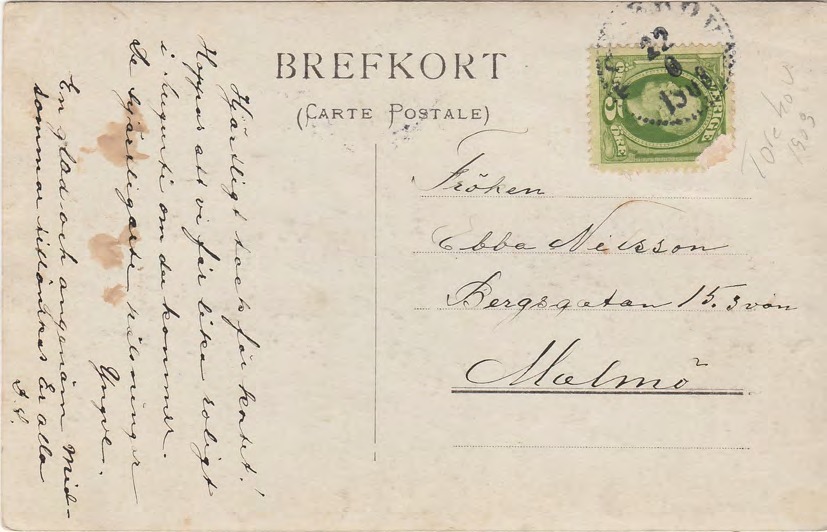 BREFKORT
(CARTE POSTALE)
Hjärtligt tack för kortet!
Hoppas att vi får lika roligt
i Augusti om du kommer.
De hjärtligaste hälsningar
Yngve.
En glad och angenäm Mid-
sommar tillönskas Er alla
Fröken
Ebba Nilsson
Bergsgatan 15. 3 vån
Malmö
5 ÖRE
SVERIGE
22
6
Torekov
1909